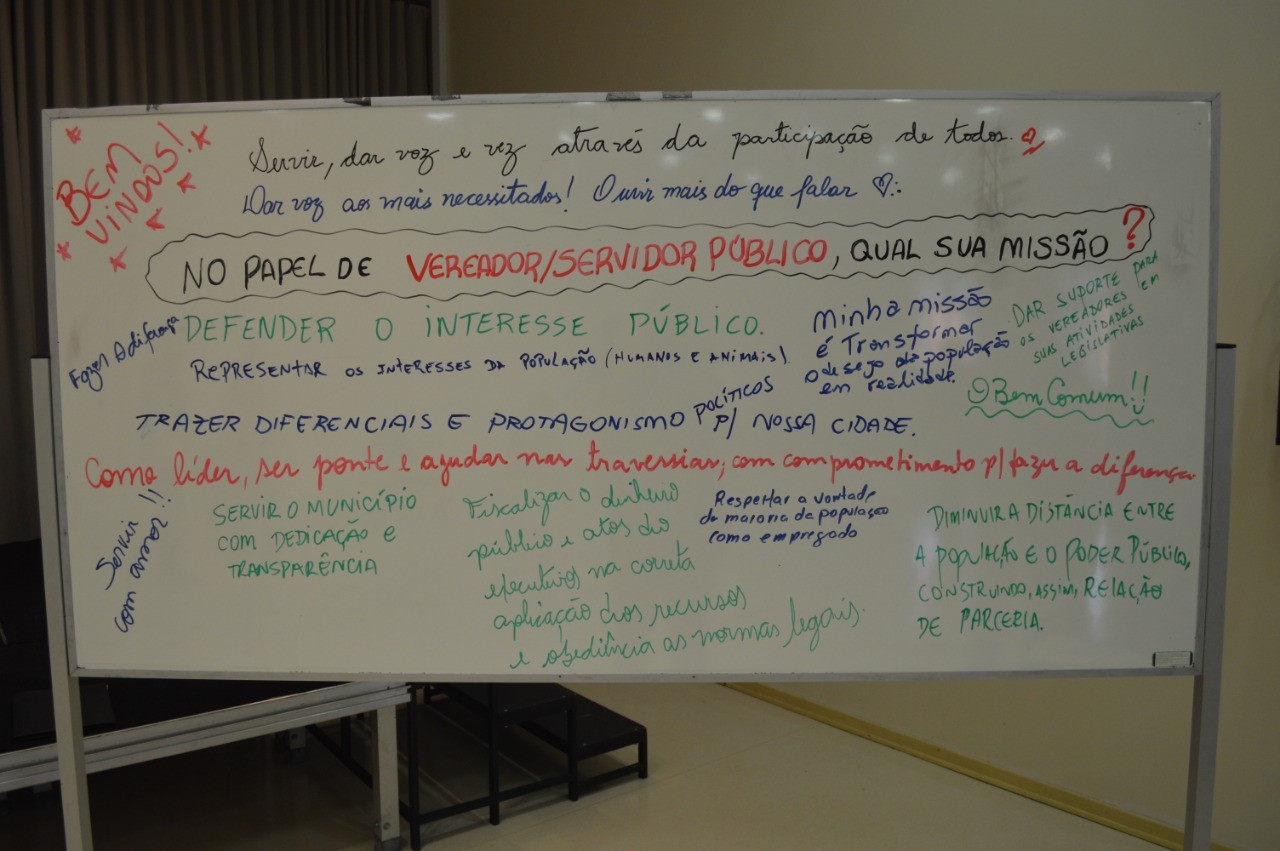 BEM
VINDOS!
Servir, dar voz e vez através da participação de todos.
Dar voz aos mais necessitados! Ouvir mais do que falar
NO PAPEL DE VEREADOR/SERVIDOR PÚBLICO, QUAL SUA MISSÃO?
Fazer A diferença
DEFENDER O INTERESSE PÚBLICO.
REPRESENTAR OS INTERESSES DA POPULAÇÃO (HUMANOS E ANIMAIS).
Minha missão
é Transformar
o desejo da população
em realidade.
DAR SUPORTE PARA
OS VEREADORES EM
SUAS ATIVIDADES
LEGISLATIVAS
O Bem Comum!!
TRAZER DIFERENCIAIS E PROTAGONISMO POLÍTICOS P/ NOSSA CIDADE.
Como líder, ser ponte e ajudar nas travessias, com comprometimento p/ fazer a diferença
Servir
com amor!!
SERVIR O MUNICÍPIO
COM DEDICAÇÃO E
TRANSPARÊNCIA
Fiscalizar o dinheiro
público e atos do
executivos na correta
aplicação dos recursos
e obediência as normas legais.
Respeitar a vontade
da maioria da população
como empregado
DIMINUIR A DISTÂNCIA ENTRE
A POPULAÇÃO E O PODER PÚBLICO,
CONSTRUINDO, ASSIM, RELAÇÃO
DE PARCERIA.